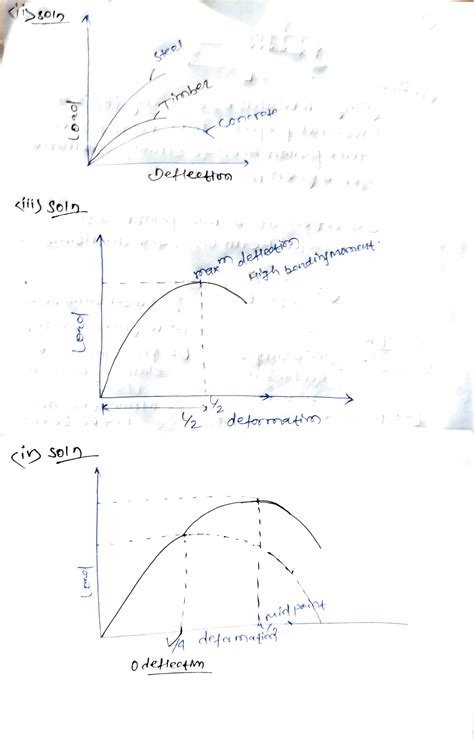 <ii> soln
Steel
Timber
Concrete
Load
Deflection
<iii> soln
maxm deflection
High bending moment.
Load
L/2
L/2 deformation
<iv> soln
Load
mid point
L/4 deformation L/2
0 deflection